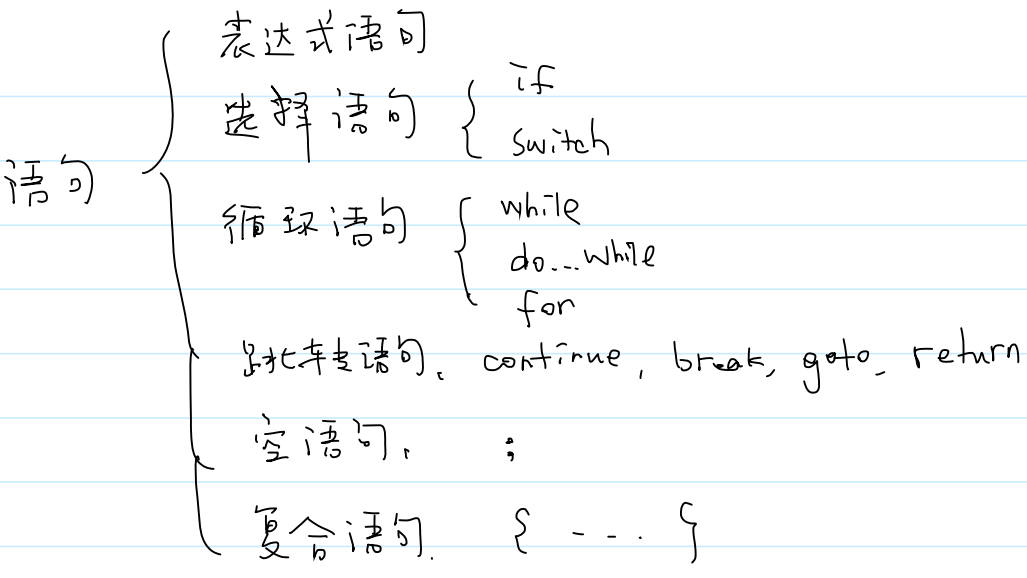 表达式语句
选择语句 { if
switch
语句
循环语句 { while
do...while
for
跳转语句. continue, break, goto. return
空语句. ;
复合语句. { --- }